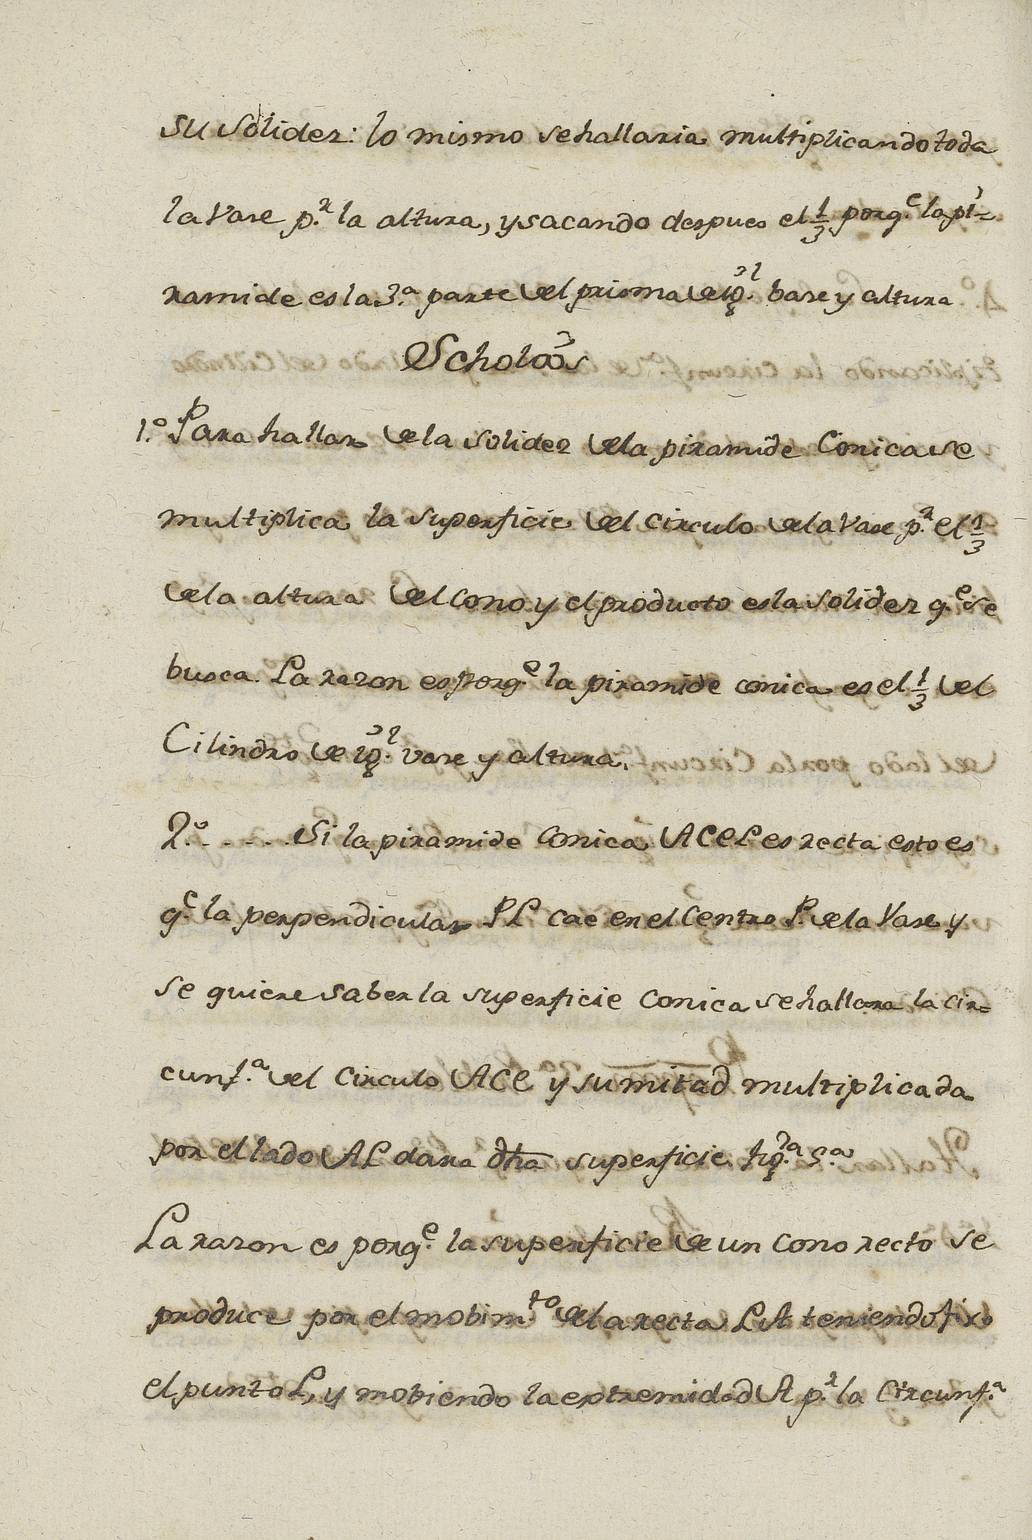 su solidez: lo mismo se hallaria multiplicando toda
la Vase p.r la altura, y sacando despues el 1/3 porq.e la pi-
ramide es la 3.a parte del prisma de ig.l base y altura
Scholios
1.o Para hallar de la solidez de la piramide Conica se
multiplica la superficie del circulo de la Vase p.r el 1/3
de la altura del Cono y el producto es la solidez q.e se
busca. La razon es porq.e la piramide conica es el 1/3 del
Cilindro de ig.l vase y altura.
2.o . . . . . Si la piramide Conica ACEL es recta esto es
q.e la perpendicular PL cae en el Centro P. de la Vase y
se quiere saber la superficie Conica se hallara la cir-
cunf.a del Circulo ACE y su mitad multiplicada
por el lado AL dara dha superficie fig.a 5.a
La razon es porq.e la superficie de un cono recto se
produce por el mobim.to de la recta LA teniendo fixo
el punto L, y mobiendo la extremidad A p.r la Circunf.a